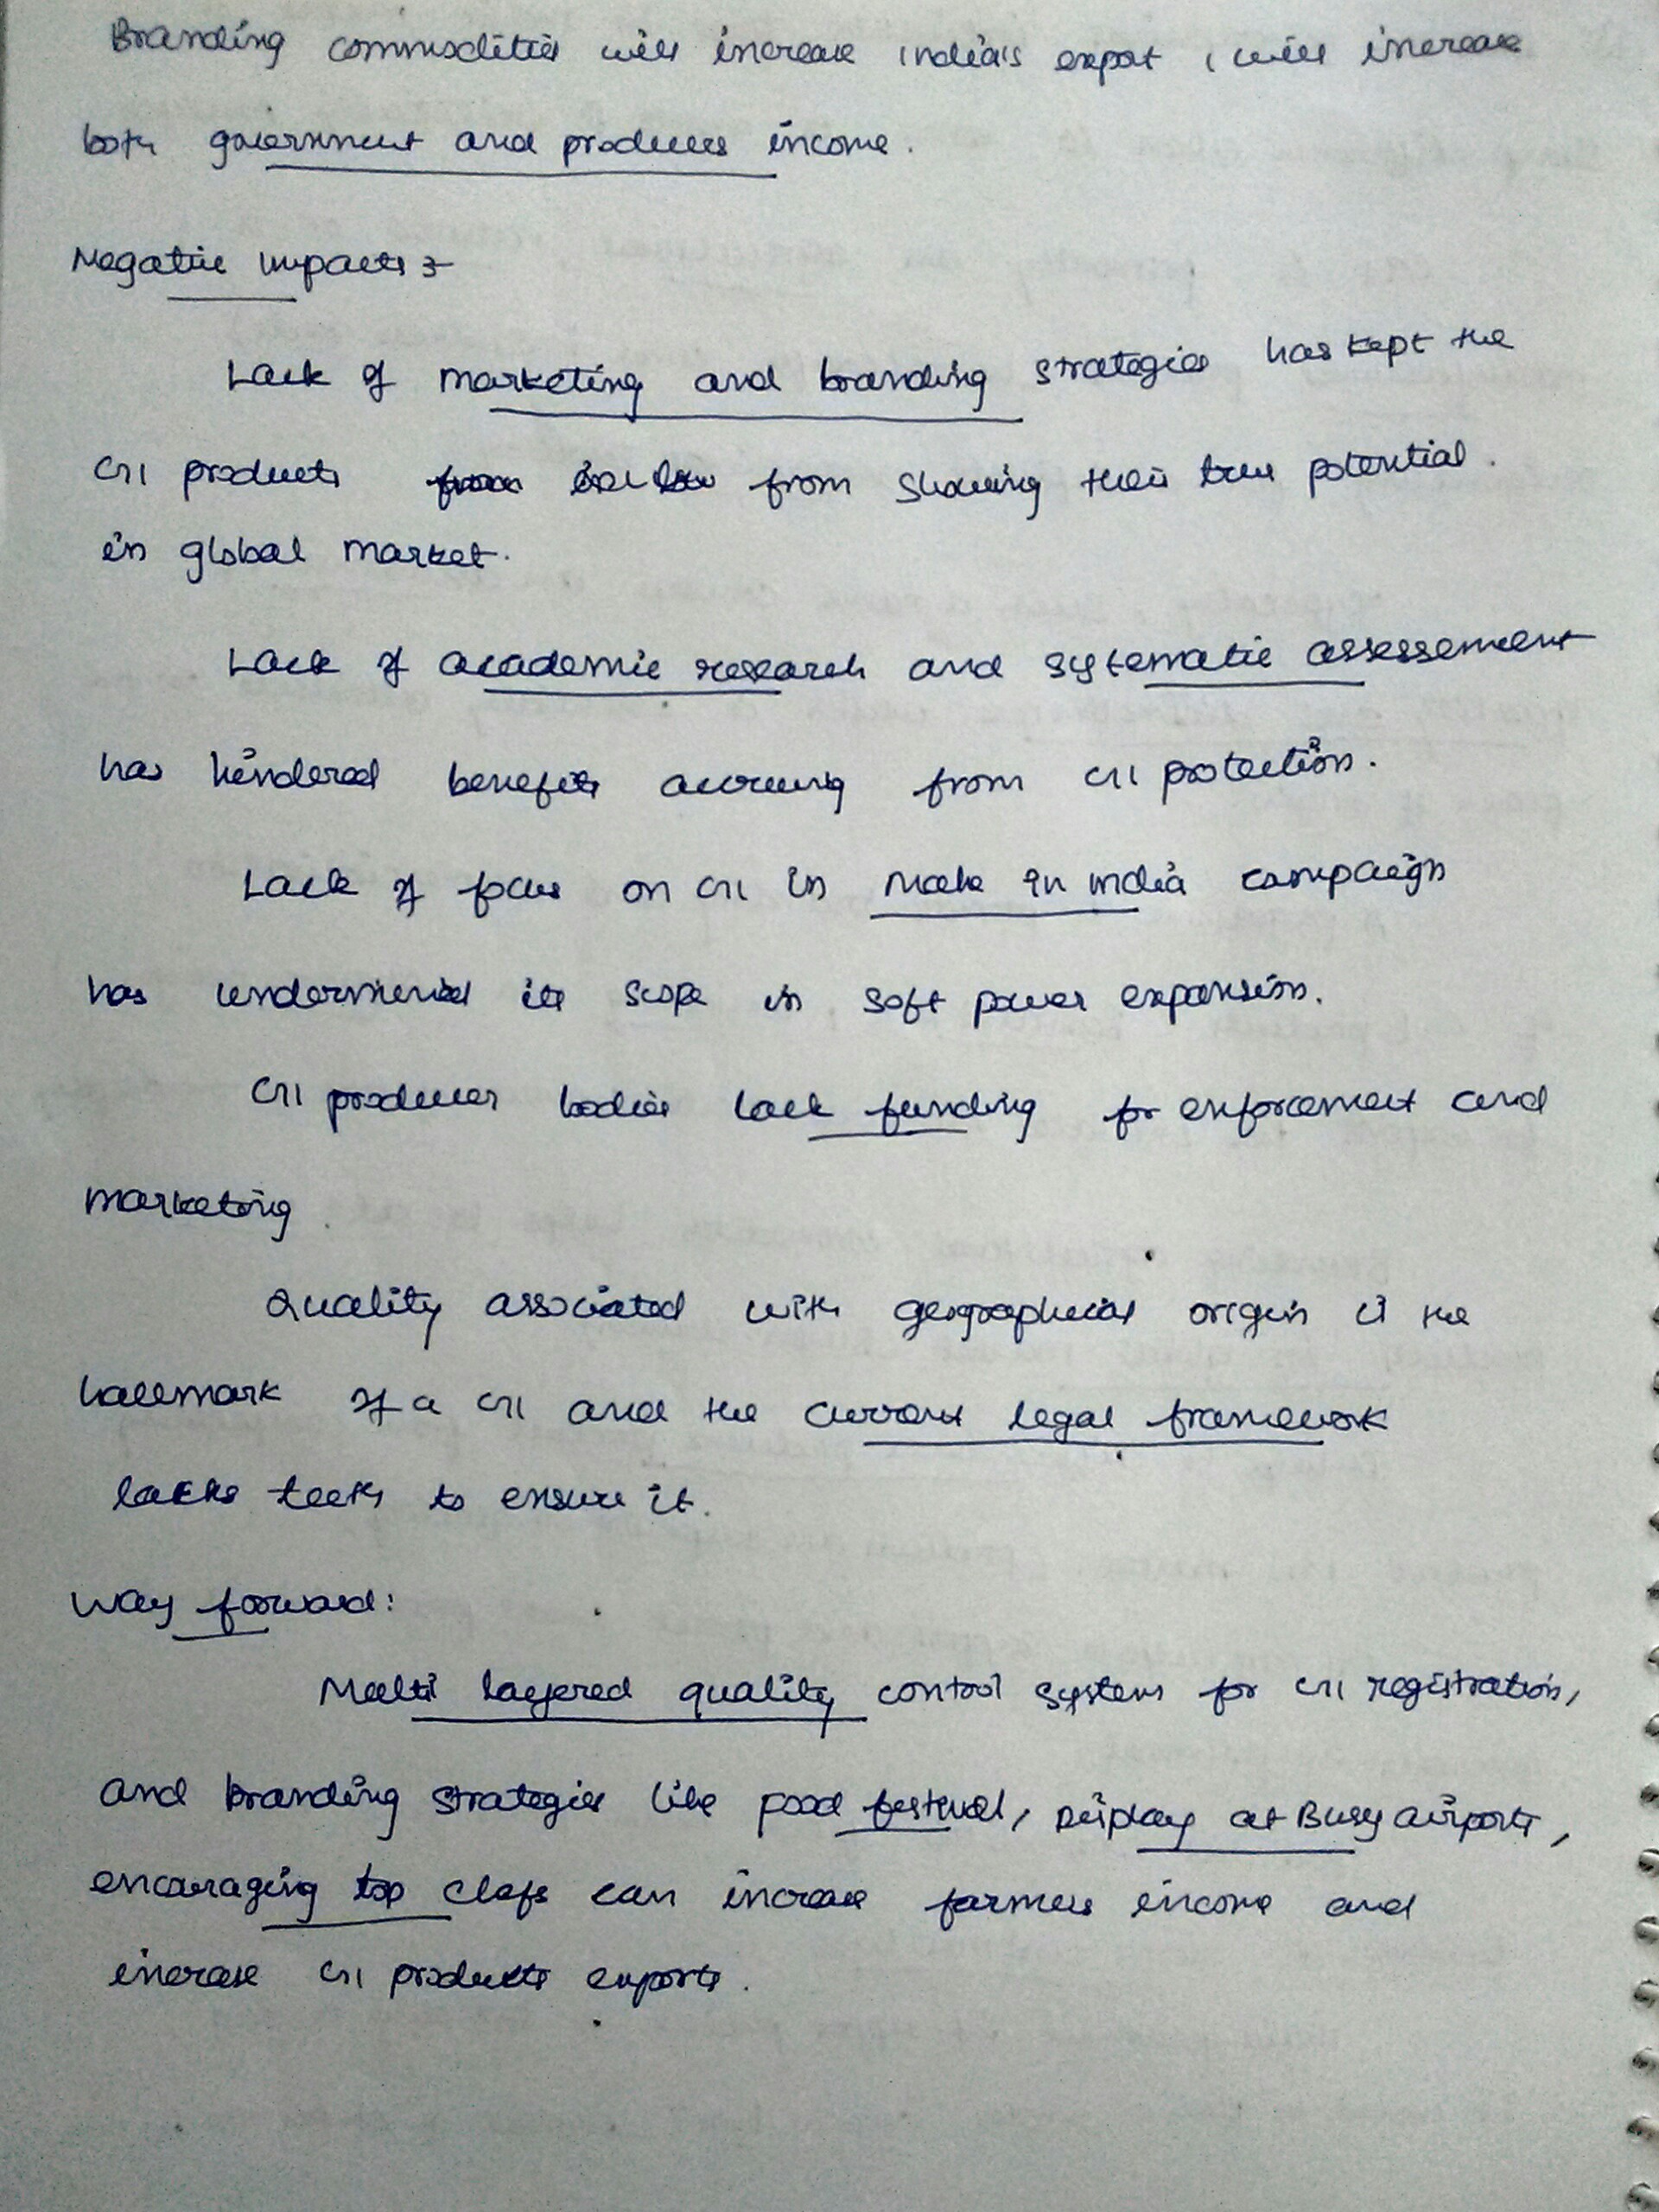 Branding commodities will increase India's export, will increase
both government and producers income.
Negative impacts :-
Lack of marketing and branding strategies has kept the
GI products from from showing their true potential.
in global market.
Lack of academic research and systematic assessement
has hindered benefits accruing from GI protection.
Lack of focus on GI in Make in India campaign
has undermined its scope in soft power expansion.
GI producer bodies lack funding for enforcement and
marketing.
Quality associated with geographical origin is the
hallmark of a GI and the current legal framework
lacks teeth to ensure it.
Way forward:
Multi layered quality control system for GI registration,
and branding strategies like food festival, Display at Busy airports,
encouraging top chefs can increase farmers income and
increase GI products exports.